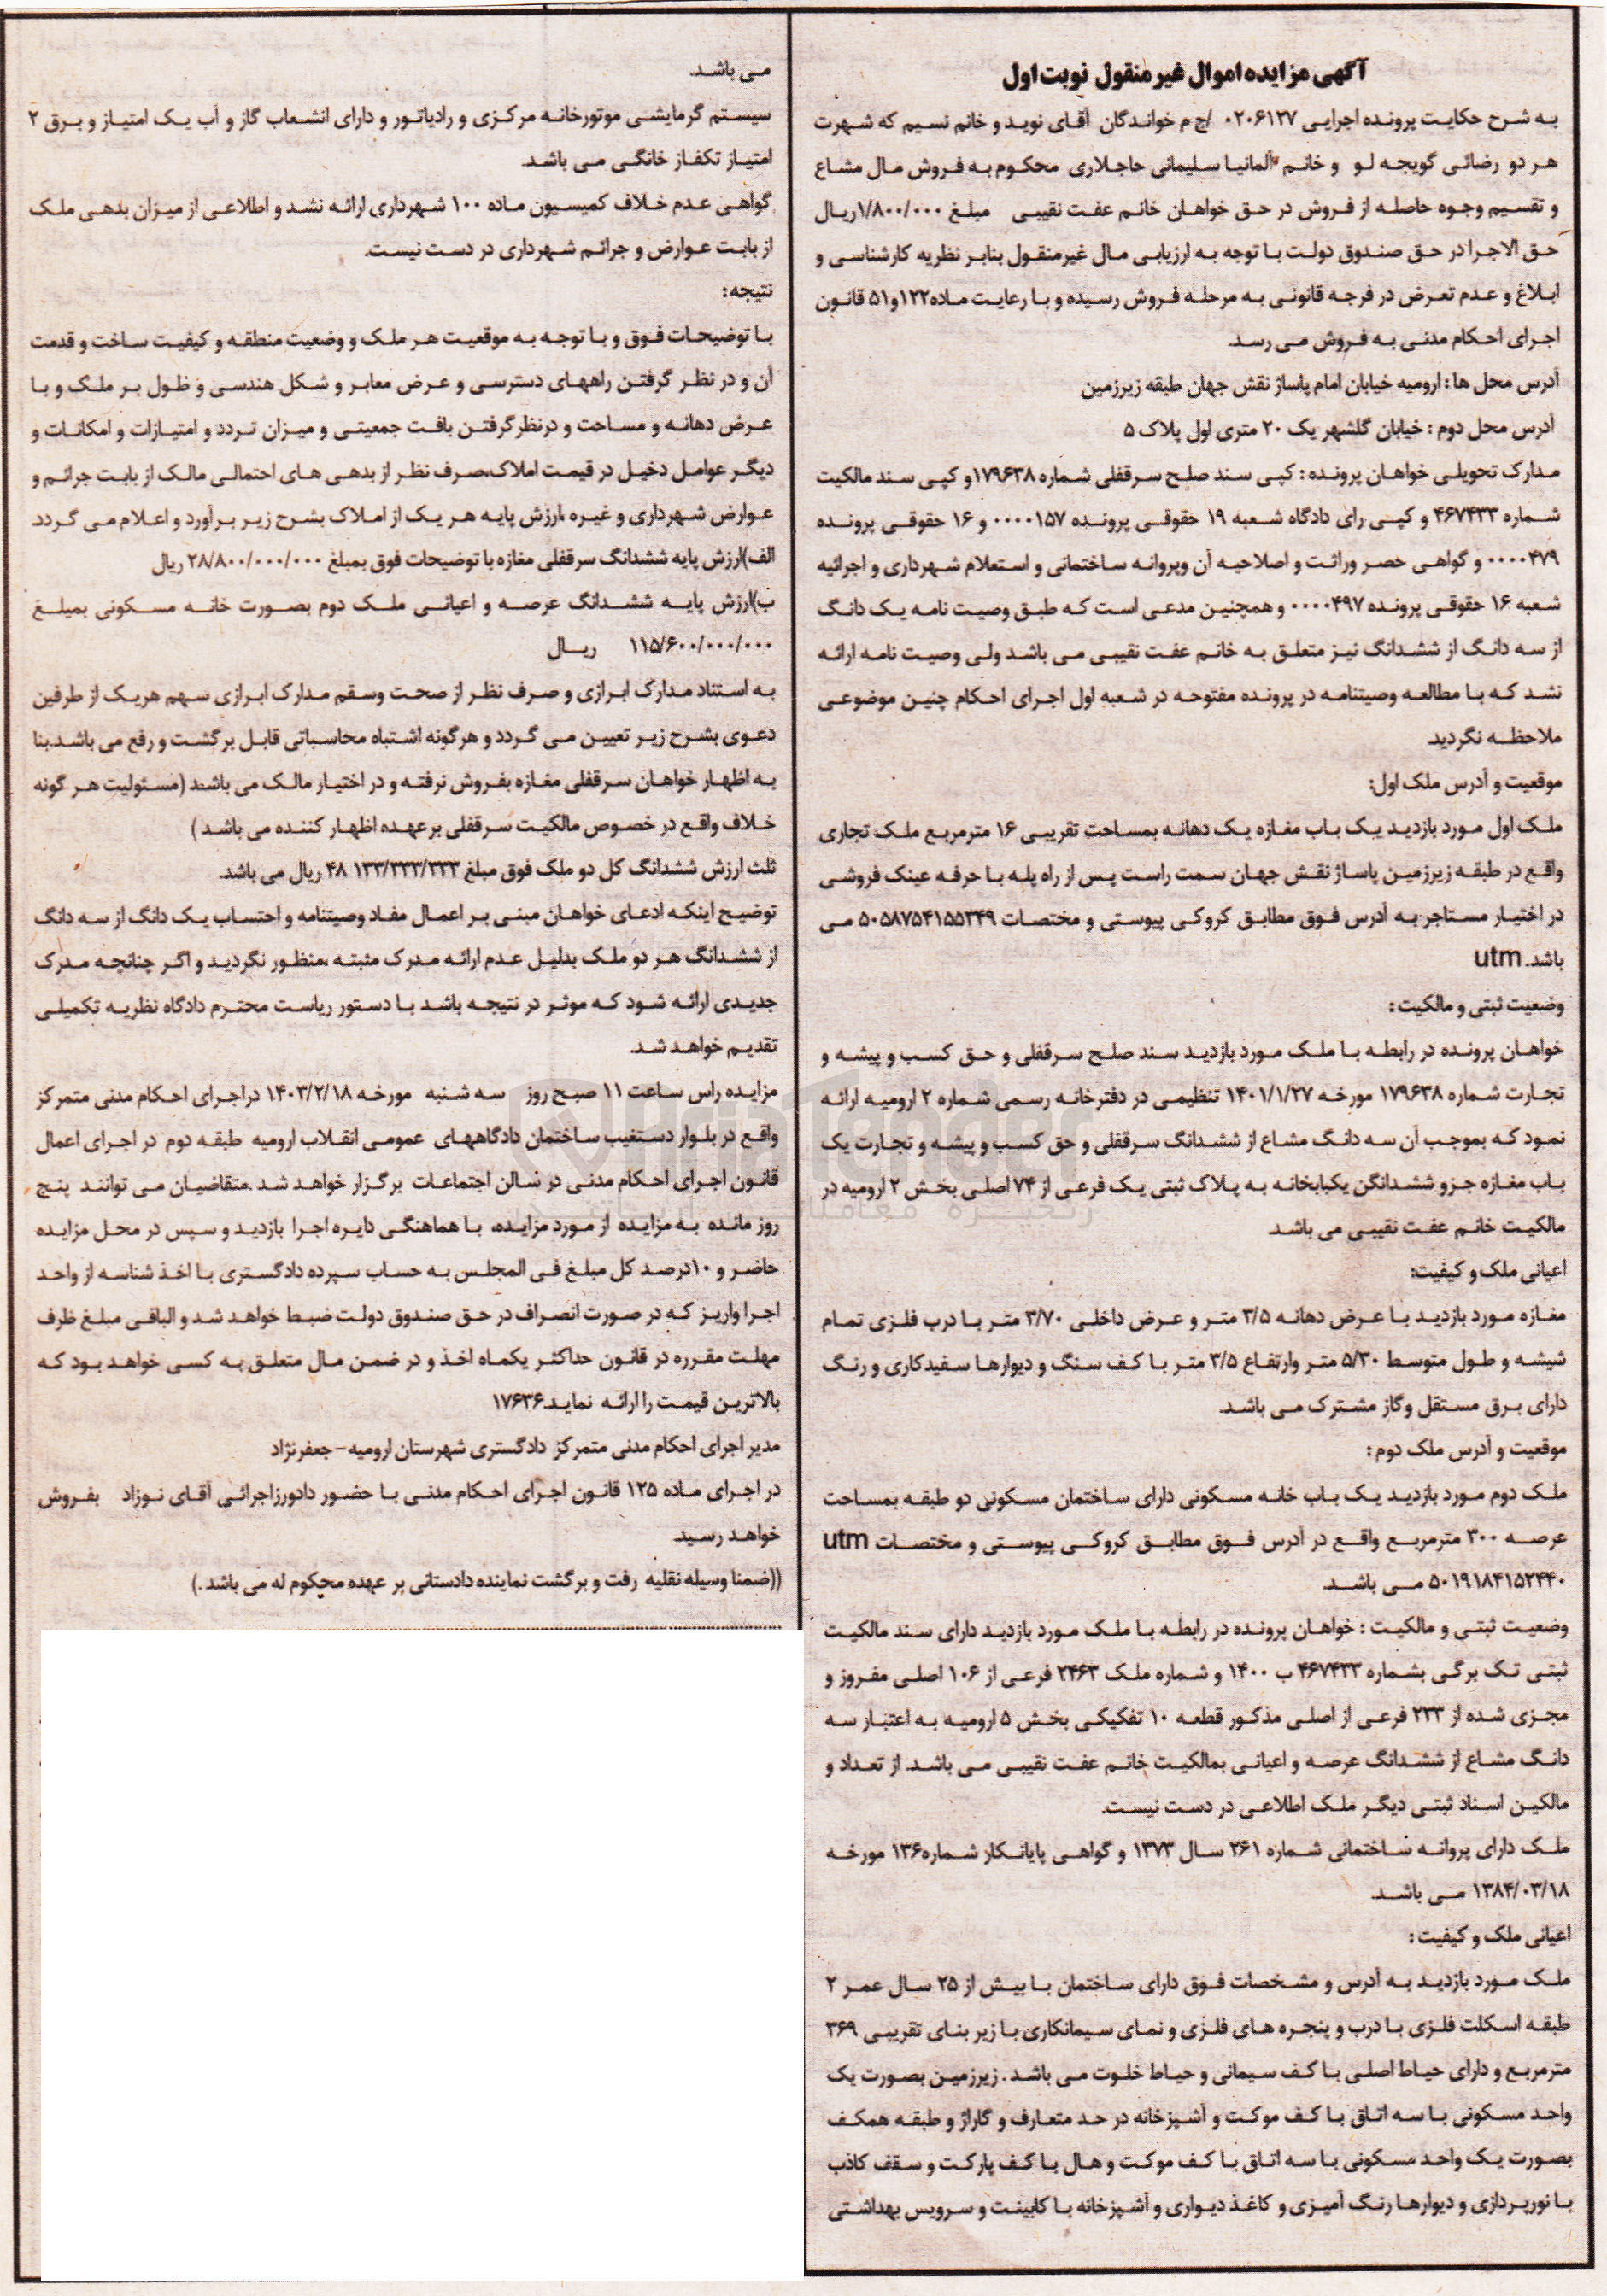 آگهی مزایده اموال غیر منقول نوبت اول
به شرح حکایت پرونده اجرایی ۰۲۰۶۱۳۷ /ج م خواندگان آقای نوید و خانم نسیم که شهرت
هر دو رضائی گویجه لو و خانم المانیا سلیمانی حاجلاری محکوم به فروش مال مشاع
و تقسیم وجوه حاصله از فروش در حق خواهان خانم عفت نقیبی مبلغ ۱/۸۰۰/۰۰۰ریال
حق الاجرا در حق صندوق دولت با توجه به ارزیابی مال غیرمنقول بنابر نظریه کارشناسی و
ابلاغ و عدم تعرض در فرجه قانونی به مرحله فروش رسیده و با رعایت ماده۱۲۲و۵۱ قانون
اجرای احکام مدنی به فروش می رسد.
آدرس محل ها : ارومیه خیابان امام پاساژ نقش جهان طبقه زیرزمین
آدرس محل دوم : خیابان گلشهر یک ۲۰ متری اول پلاک ۵
مدارک تحویلی خواهان پرونده : کپی سند صلح سرقفلی شماره ۱۷۹۶۳۸و کپی سند مالکیت
شماره ۴۶۷۴۳۳ و کپی رای دادگاه شعبه ۱۹ حقوقی پرونده ۰۰۰۰۱۵۷ و ۱۶ حقوقی پرونده
۰۰۰۰۴۷۹ و گواهی حصر وراثت و اصلاحیه آن وپروانه ساختمانی و استعلام شهرداری و اجرائیه
شعبه ۱۶ حقوقی پرونده ۰۰۰۰۴۹۷ و همچنین مدعی است که طبق وصیت نامه یک دانگ
از سه دانگ از ششدانگ نیز متعلق به خانم عفت نقیبی می باشد ولی وصیت نامه ارائه
نشد که با مطالعه وصیتنامه در پرونده مفتوحه در شعبه اول اجرای احکام چنین موضوعی
ملاحظه نگردید.
موقعیت و آدرس ملک اول:
ملک اول مورد بازدید یک باب مغازه یک دهانه بمساحت تقریبی ۱۶ مترمربع ملک تجاری
واقع در طبقه زیرزمین پاساژ نقش جهان سمت راست پس از راه پله با حرفه عینک فروشی
در اختیار مستاجر به آدرس فوق مطابق کروکی پیوستی و مختصات ۵۰۵۸۷۵۴۱۵۵۳۴۹ می
باشد. utm
وضعیت ثبتی و مالکیت :
خواهان پرونده در رابطه با ملک مورد بازدید سند صلح سرقفلی و حق کسب و پیشه و
تجارت شماره ۱۷۹۶۳۸ مورخه ۱۴۰۱/۱/۲۷ تنظیمی در دفترخانه رسمی شماره ۲ ارومیه ارائه
نمود که بموجب آن سه دانگ مشاع از ششدانگ سرقفلی و حق کسب و پیشه و تجارت یک
باب مغازه جزو ششدانگن یکبابخانه به پلاک ثبتی یک فرعی از ۷۴ اصلی بخش ۲ ارومیه در
مالکیت خانم عفت نقیبی می باشد.
اعیانی ملک و کیفیت:
مغازه مورد بازدید با عرض دهانه ۳/۵ متر و عرض داخلی ۳/۷۰ متر با درب فلزی تمام
شیشه و طول متوسط ۵/۳۰ متر وارتفاع ۳/۵ متر با کف سنگ و دیوارها سفیدکاری و رنگ
دارای برق مستقل وگاز مشترک می باشد.
موقعیت و آدرس ملک دوم :
ملک دوم مورد بازدید یک باب خانه مسکونی دارای ساختمان مسکونی دو طبقه بمساحت
عرصه ۳۰۰ مترمربع واقع در آدرس فوق مطابق کروکی پیوستی و مختصات utm
۵۰۱۹۱۸۴۱۵۲۴۴۰ می باشد.
وضعیت ثبتی و مالکیت : خواهان پرونده در رابطه با ملک مورد بازدید دارای سند مالکیت
ثبتی تک برگی بشماره ۴۶۷۴۳۳ ب ۱۴۰۰ و شماره ملک ۲۴۶۳ فرعی از ۱۰۶ اصلی مفروز و
مجزی شده از ۲۳۳ فرعی از اصلی مذکور قطعه ۱۰ تفکیکی بخش ۵ ارومیه به اعتبار سه
دانگ مشاع از ششدانگ عرصه و اعیانی بمالکیت خانم عفت نقیبی می باشد. از تعداد و
مالکین اسناد ثبتی دیگر ملک اطلاعی در دست نیست.
ملک دارای پروانه ساختمانی شماره ۲۶۱ سال ۱۳۷۳ و گواهی پایانکار شماره۱۳۶ مورخه
۱۳۸۴/۰۳/۱۸ می باشد.
اعیانی ملک و کیفیت :
ملک مورد بازدید به آدرس و مشخصات فوق دارای ساختمان با بیش از ۲۵ سال عمر ۲
طبقه اسکلت فلزی با درب و پنجره های فلزی و نمای سیمانکاری با زیر بنای تقریبی ۳۶۹
مترمربع و دارای حیاط اصلی با کف سیمانی و حیاط خلوت می باشد . زیرزمین بصورت یک
واحد مسکونی با سه اتاق با کف موکت و آشپزخانه در حد متعارف و گاراژ و طبقه همکف
بصورت یک واحد مسکونی با سه اتاق با کف موکت و هال با کف پارکت و سقف کاذب
با نورپردازی و دیوارها رنگ آمیزی و کاغذ دیواری و آشپزخانه با کابینت و سرویس بهداشتی
می باشد.
سیستم گرمایشی موتورخانه مرکزی و رادیاتور و دارای انشعاب گاز و آب یک امتیاز و برق ۲
امتیاز تکفاز خانگی می باشد.
گواهی عدم خلاف کمیسیون ماده ۱۰۰ شهرداری ارائه نشد و اطلاعی از میزان بدهی ملک
از بابت عوارض و جرائم شهرداری در دست نیست.
نتیجه:
با توضیحات فوق و با توجه به موقعیت هر ملک و وضعیت منطقه و کیفیت ساخت و قدمت
آن و در نظر گرفتن راههای دسترسی و عرض معابر و شکل هندسی و طول بر ملک و با
عرض دهانه و مساحت و درنظرگرفتن بافت جمعیتی و میزان تردد و امتیازات و امکانات و
دیگر عوامل دخیل در قیمت املاک،صرف نظر از بدهی های احتمالی مالک از بابت جرائم و
عوارض شهرداری و غیره ،ارزش پایه هر یک از املاک بشرح زیر برآورد و اعلام می گردد.
الف)ارزش پایه ششدانگ سرقفلی مغازه با توضیحات فوق بمبلغ ۲۸/۸۰۰/۰۰۰/۰۰۰ ریال
ب)ارزش پایه ششدانگ عرصه و اعیانی ملک دوم بصورت خانه مسکونی بمبلغ
۱۱۵/۶۰۰/۰۰۰/۰۰۰ ریال
به استناد مدارک ابرازی و صرف نظر از صحت وسقم مدارک ابرازی سهم هریک از طرفین
دعوی بشرح زیر تعیین می گردد و هرگونه اشتباه محاسباتی قابل برگشت و رفع می باشد.بنا
به اظهار خواهان سرقفلی مغازه بفروش نرفته و در اختیار مالک می باشد (مسئولیت هر گونه
خلاف واقع در خصوص مالکیت سرقفلی برعهده اظهار کننده می باشد )
ثلث ارزش ششدانگ کل دو ملک فوق مبلغ ۴۸ ۱۳۳/۳۳۳/۳۳۳ ریال می باشد.
توضیح اینکه ادعای خواهان مبنی بر اعمال مفاد وصیتنامه و احتساب یک دانگ از سه دانگ
از ششدانگ هر دو ملک بدلیل عدم ارائه مدرک مثبته ،منظور نگردید و اگر چنانچه مدرک
جدیدی ارائه شود که موثر در نتیجه باشد با دستور ریاست محترم دادگاه نظریه تکمیلی
تقدیم خواهد شد.
مزایده راس ساعت ۱۱ صبح روز سه شنبه مورخه ۱۴۰۳/۲/۱۸ دراجرای احکام مدنی متمرکز
واقع در بلوار دستغیب ساختمان دادگاههای عمومی انقلاب ارومیه طبقه دوم در اجرای اعمال
قانون اجرای احکام مدنی در سالن اجتماعات برگزار خواهد شد .متقاضیان می توانند پنج
روز مانده به مزایده از مورد مزایده، با هماهنگی دایره اجرا بازدید و سپس در محل مزایده
حاضر و ۱۰درصد کل مبلغ فی المجلس به حساب سپرده دادگستری با اخذ شناسه از واحد
اجرا واریز که در صورت انصراف در حق صندوق دولت ضبط خواهد شد و الباقی مبلغ ظرف
مهلت مقرره در قانون حداکثر یکماه اخذ و در ضمن مال متعلق به کسی خواهد بود که
بالاترین قیمت را ارائه نماید.۱۷۶۳۶
مدیر اجرای احکام مدنی متمرکز دادگستری شهرستان ارومیه - جعفرنژاد
در اجرای ماده ۱۲۵ قانون اجرای احکام مدنی با حضور دادورزاجرائی آقای نوزاد بفروش
خواهد رسید.
((ضمنا وسیله نقلیه رفت و برگشت نماینده دادستانی بر عهده محکوم له می باشد .)